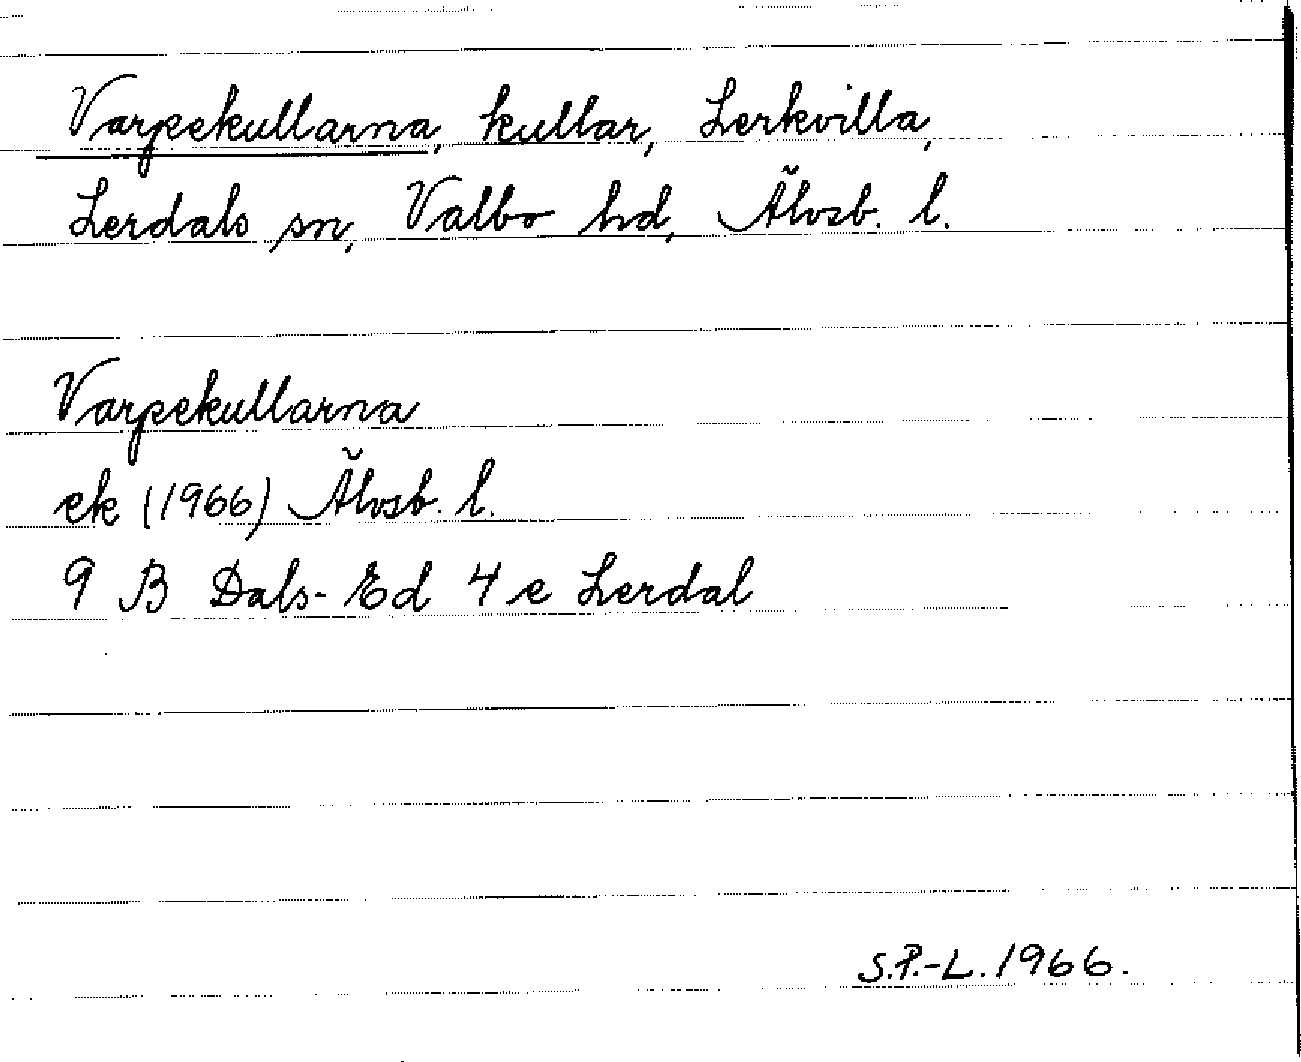 Varpekullarna, kullar, Lerkvilla,
Lerdals sn, Valbo hd, Älvsb. l.
Varpekullarna
ek (1966) Älvsb. l.
9 B Dals-Ed 4 e Lerdal
S.P.-L. 1966.